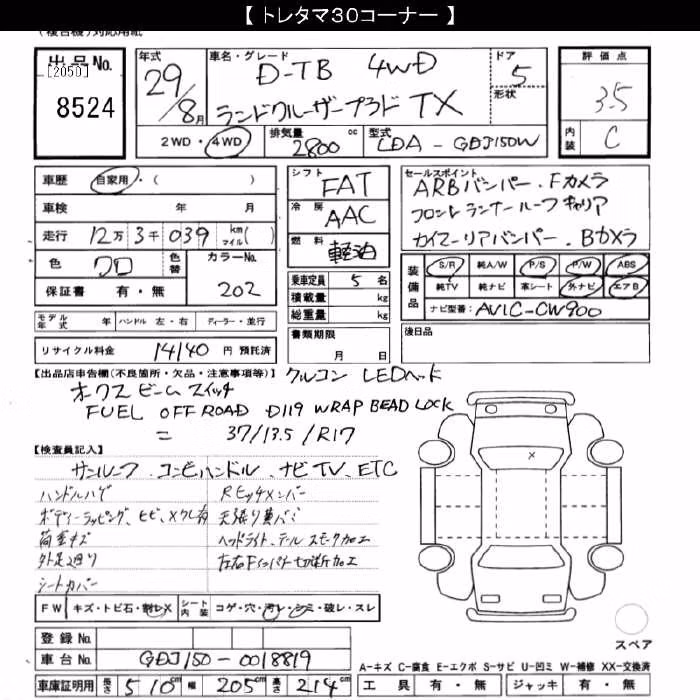 【 トレタマ30コーナー 】
(複合機)対応用紙
出品No. [2050] 8524
年式 29/8月
車名・グレード D-TB 4WD
ランドクルーザープラド TX
ドア 5 形状
評価点 3.5
内装 C
2WD・4WD 排気量 2800cc 型式 LDA-GDJ150W
車歴 自家用・( )
車検 年 月
走行 12万3千039 km マイル( )
色 クロ 色替 カラーNo. 202
保証書 有・無
モデル年式 年 ハンドル 左・右 ディーラー・並行
リサイクル料金 14140 円 預託済
シフト FAT
冷房 AAC
燃料 軽油
乗車定員 5 名
積載量 kg
総重量 kg
書類期限
月 日
セールスポイント
ARBバンパー.Fカメラ
フロントランナールーフキャリア
カイマーリアバンパー.Bカメラ
装備品 S/R 純A/W P/S P/W ABS
純TV 純ナビ 革シート 外ナビ エアB
ナビ型番: AVIC-CW900
後日品
【出品店申告欄(不良箇所・欠品・注意事項等)】 クルコン LEDヘッド
オークスビームスイッチ
FUEL OFFROAD D119 WRAP BEAD LOCK
= 37/13.5/R17
【検査員記入】
サンルーフ.コンビハンドル、ナビTV、ETC
ハンドルハゲ Rヒッチメンバー
ボディーラッピング、ヒビ、メクレ有 天張り黄バミ
荷室キズ ヘッドライト、テールスモーク加工
外足廻り 左右Fインパネ切断加工
シートカバー
FW キズ・トビ石・割レX シート内装 コゲ・穴・汚レ・シミ・破レ・スレ
登録No.
車台No. GDJ150-0018819
車庫証明用 長さ 510cm 幅 205cm 高さ 214cm
スペア
A-キズ C-腐食 E-エクボ S-サビ U-凹ミ W-補修 XX-交換済
工具 有・無 ジャッキ 有・無